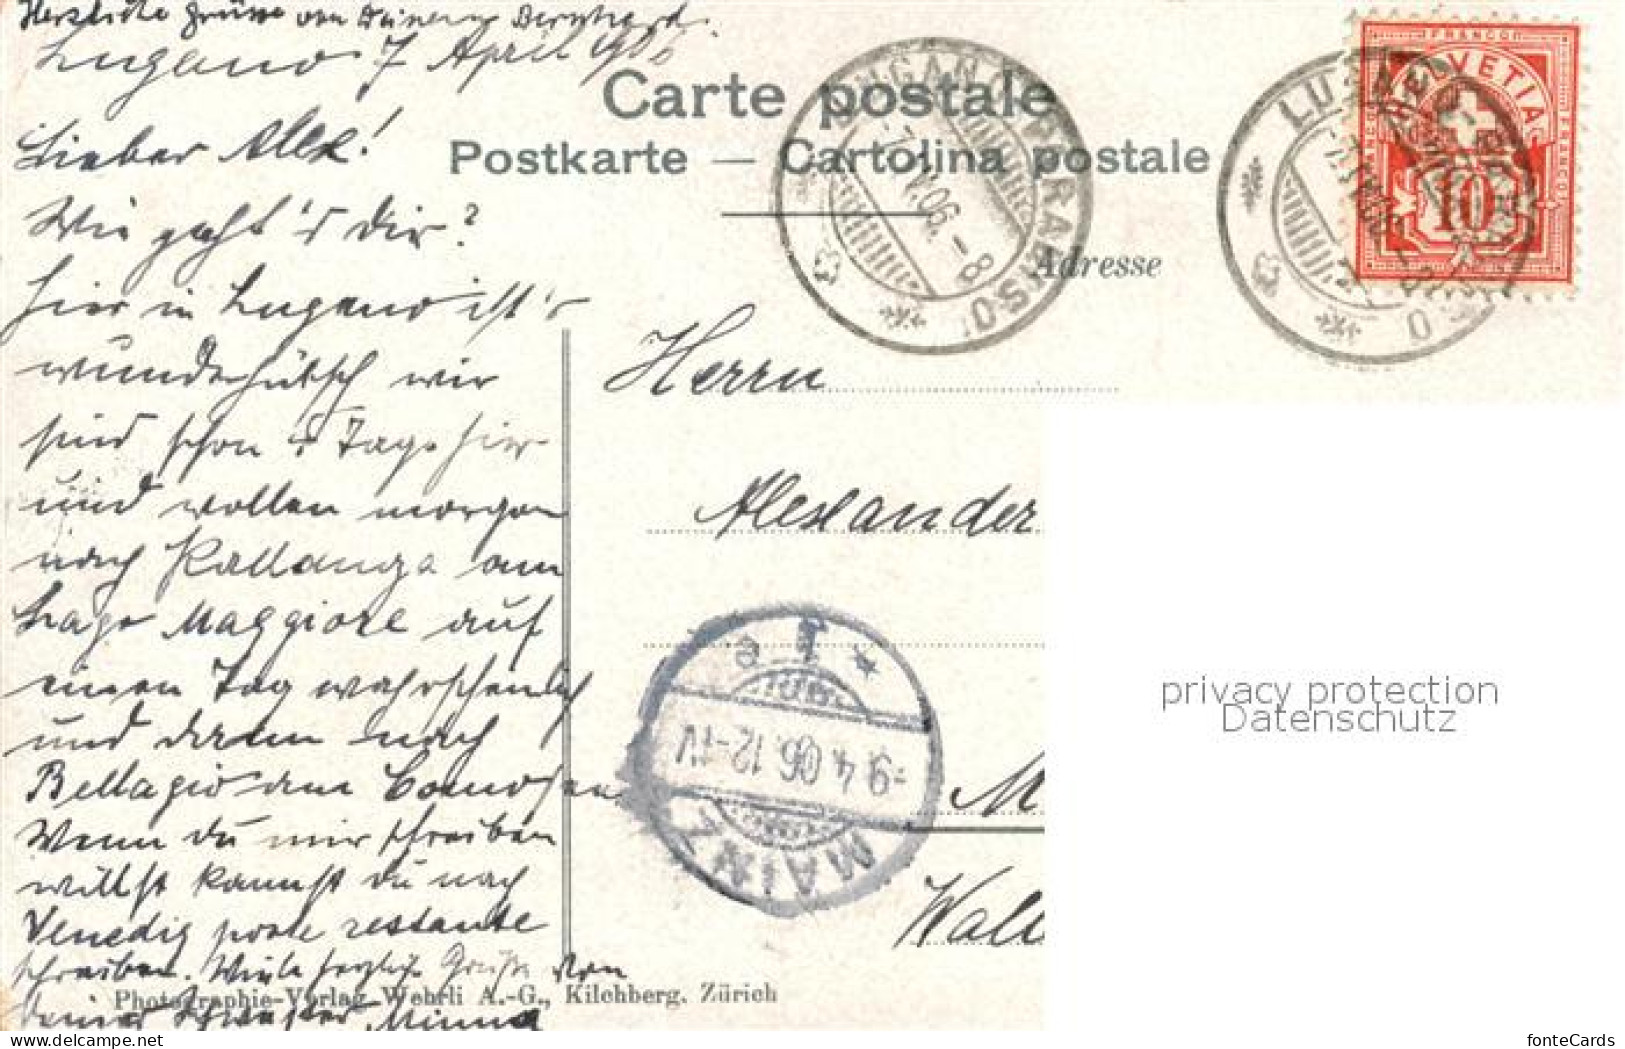 Herzliche Grüsse von Deinem Bernhard.
Lugano 7 April 1906
Carte postale
Postkarte — Cartolina postale
Adresse
Lieber Alex!
Wie geht's dir?
Hier in Lugano ist's
wunderhübsch wir
sind schon 4 Tage hier
und wollen morgen
nach Pallanza am
Lago Maggiore auf
einen Tag wahrscheinlich
und dann nach
Bellagio am Comosee
Wenn du mir schreiben
willst kannst du nach
Venedig poste restante
schreiben. Viele herzliche Grüße von
deiner Schwester Minna
Herrn
Alexander
M
Wall
LUGANO
7.IV.06.-8
FRANCO
HELVETIA
FRANCO
FRANCO
10
MAINZ
-9.4.06.12-1V
1 e
Photographie-Verlag Wehrli A.-G., Kilchberg. Zürich
privacy protection
Datenschutz
www.delcampe.net
fonteCards